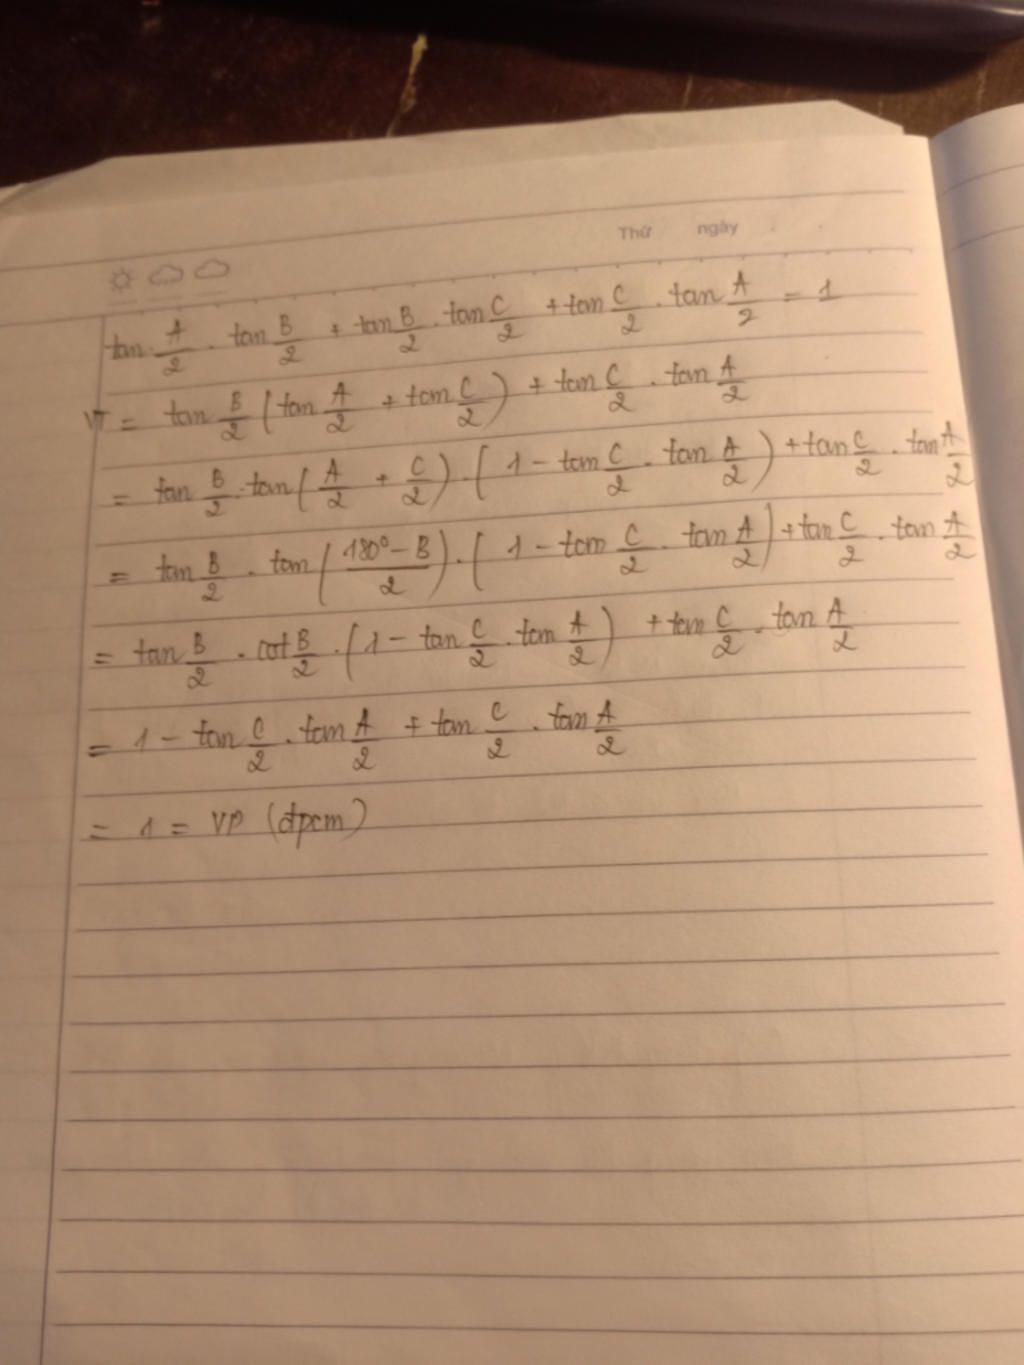 Thứ ngày
tan A/2 . tan B/2 + tan B/2 . tan C/2 + tan C/2 . tan A/2 = 1
VT = tan B/2 (tan A/2 + tan C/2) + tan C/2 . tan A/2
= tan B/2 . tan (A/2 + C/2) . (1 - tan C/2 . tan A/2) + tan C/2 . tan A/2
= tan B/2 . tan ((180° - B)/2) . (1 - tan C/2 . tan A/2) + tan C/2 . tan A/2
= tan B/2 . cot B/2 . (1 - tan C/2 . tan A/2) + tan C/2 . tan A/2
= 1 - tan C/2 . tan A/2 + tan C/2 . tan A/2
= 1 = VP (đpcm)